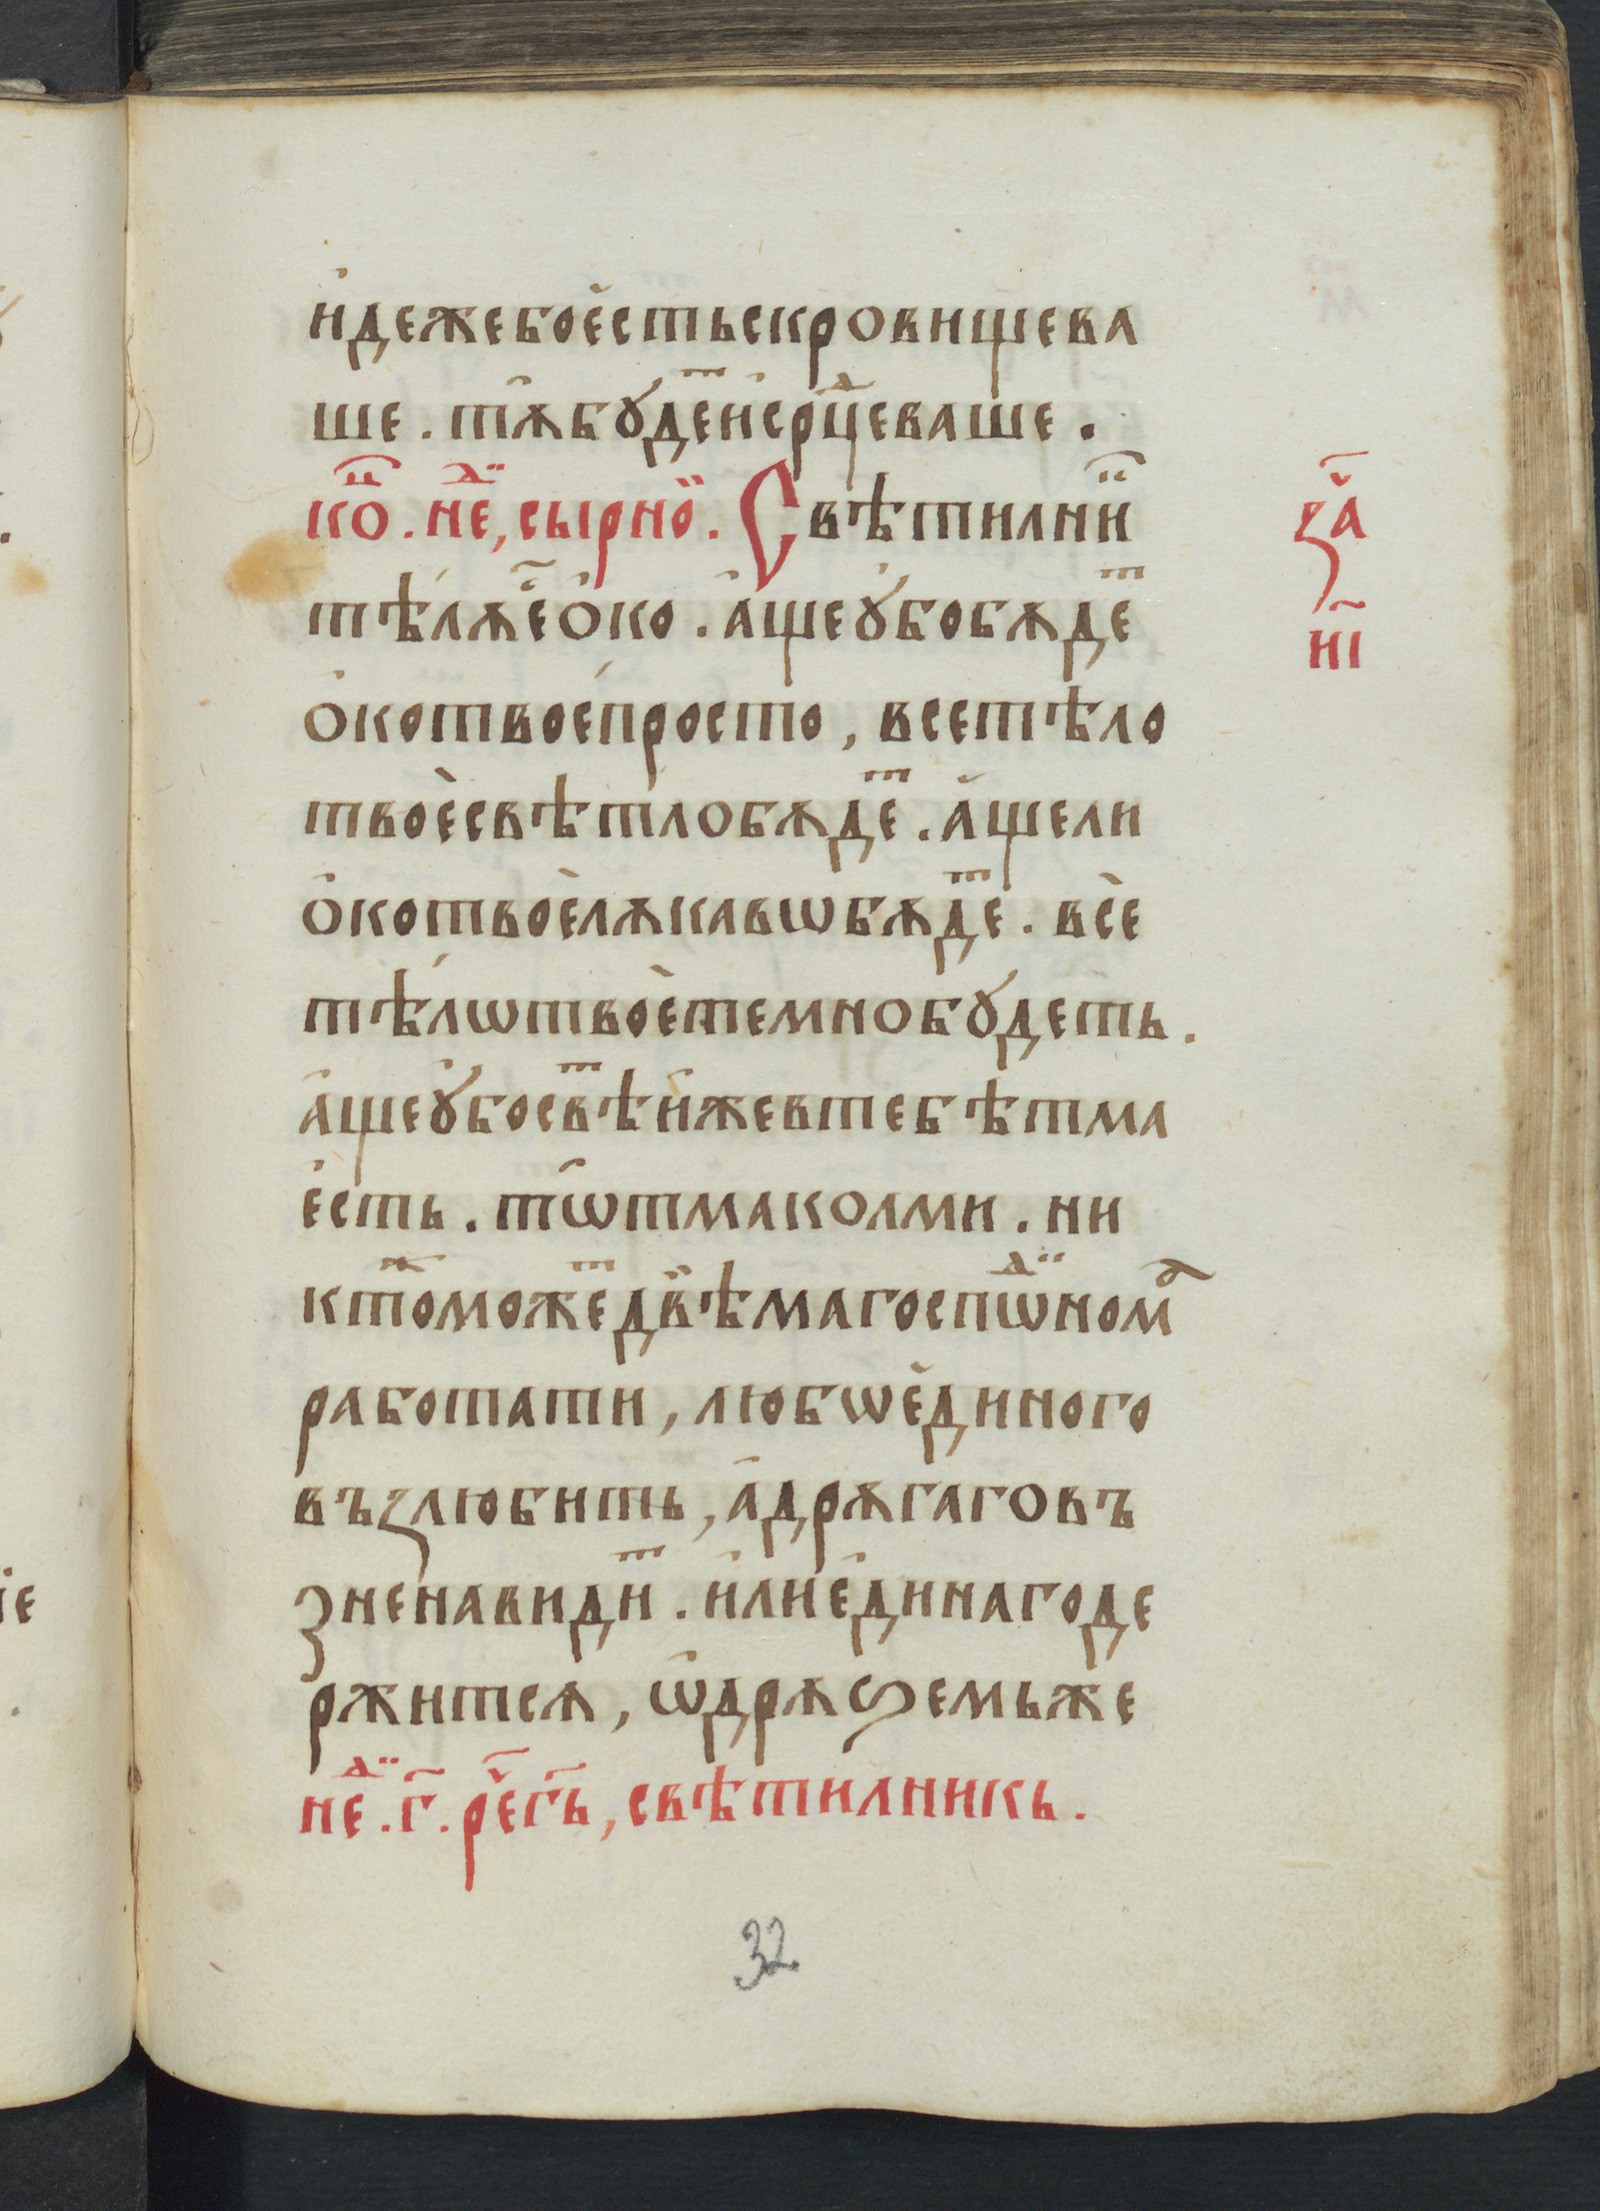 и҆дежебое҆стьскровищева
ше. тѫбꙋдеⷮи҆срⷣцеваше.
коⷰ҇. неⷣ, сырноⷪ. Свѣтилниⷦ
тѣлѫеⷭ҇ѻ҆ко. а҆щеꙋ҆бобѫдеⷮ
ѻ҆котвоепросто, всетѣло
твое҆свѣтлобѫдеⷮ. а҆щели
ѻ҆котвое҆лѫкавѡбѫдеⷮ. все
тѣлѡтвое҆темнобꙋдеть.
а҆щеꙋ҆босвѣⷮи҆жевтебѣтма
е҆сть. тѡтмаколми. ни
ктоⷤможеⷮдвѣмагоспѡⷣномⷶ
работати, любѡе҆диного
възлюбить, а҆дрѫгаговъ
зненавидиⷮ. и҆лие҆динагоде
ржитсѧ, ѡ҆дрѫѕемьже
неⷣ. г҃. реⷱ҇г҃ь, свѣтилникь.
заⷱ҇
и҃і
32